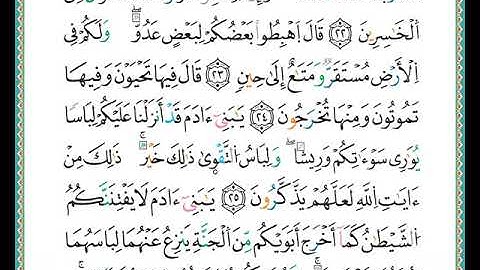 اَلْخَٰسِرِينَ ٢٢ قَالَ اَهْبِطُوا۟ بَعْضُكُمْ لِبَعْضٍ عَدُوٌّ ۖ وَلَكُمْ فِى
اِلْأَرْضِ مُسْتَقَرٌّ وَمَتَٰعٌ إِلَىٰ حِينٍ ٢٣ قَالَ فِيهَا تَحْيَوْنَ وَفِيهَا
تَمُوتُونَ وَمِنْهَا تُخْرَجُونَ ٢٤ يَٰبَنِىٓ ءَادَمَ قَدْ أَنزَلْنَا عَلَيْكُمْ لِبَاسًا
يُوَٰرِى سَوْءَٰتِكُمْ وَرِيشًا ۖ وَلِبَاسُ اُلتَّقْوَىٰ ذَٰلِكَ خَيْرٌ ۚ ذَٰلِكَ مِنْ
ءَايَٰتِ اِللَّهِ لَعَلَّهُمْ يَذَّكَّرُونَ ٢٥ يَٰبَنِىٓ ءَادَمَ لَا يَفْتِنَنَّكُمُ
اُلشَّيْطَٰنُ كَمَآ أَخْرَجَ أَبَوَيْكُم مِّنَ اَلْجَنَّةِ يَنزِعُ عَنْهُمَا لِبَاسَهُمَا